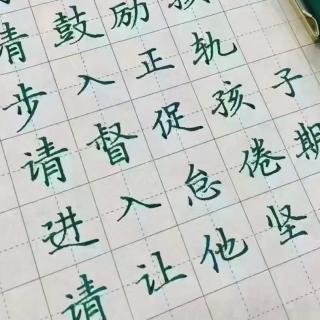 请鼓励孩
步入正轨
请督促孩子
进入怠倦期
请让他坚